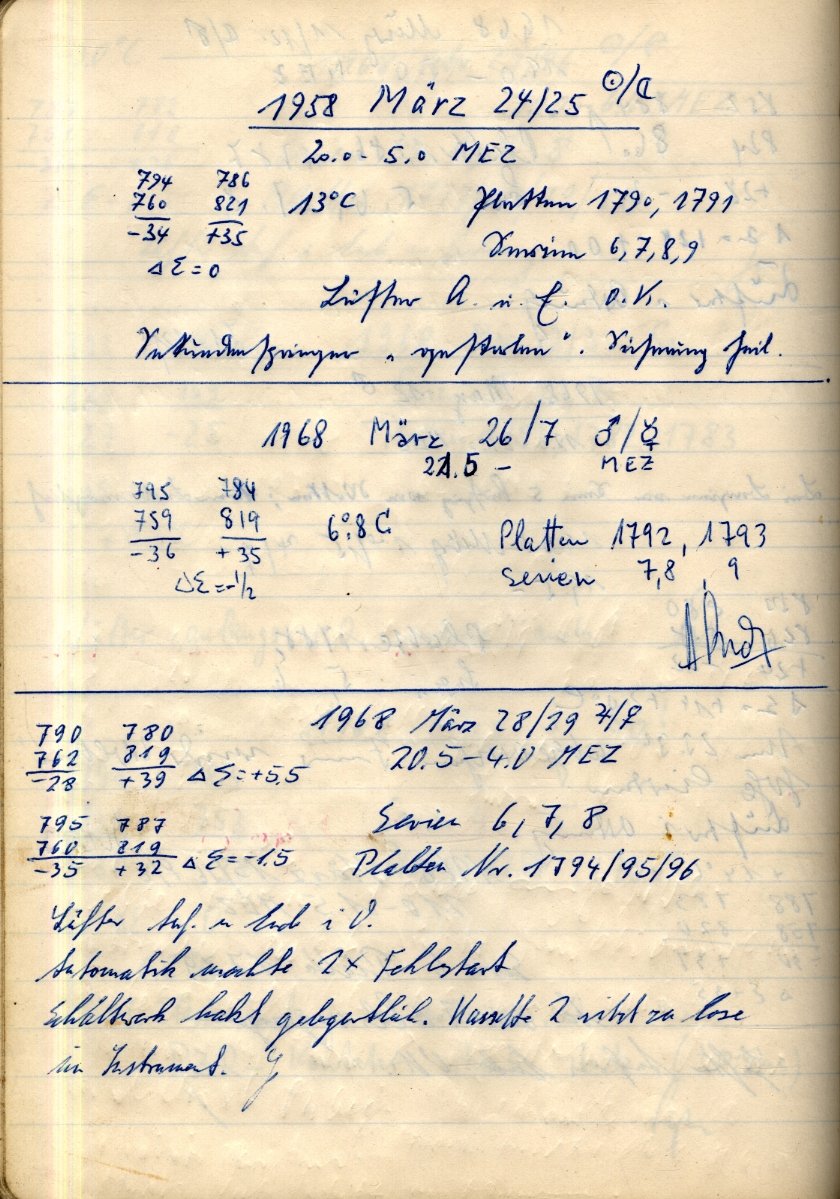 1958 März 24/25 ☉/☾
20.0 - 5.0 MEZ
794 786
760 821 13°C Platten 1790, 1791
-34 +35
Serien 6, 7, 8, 9
Δ Σ = 0
Lüfter A. u. E. o.K.
Sekundenspringer „gestorben“. Sicherung heil.
1968 März 26/7 ♂/☿
21.5 - MEZ
795 784
759 819 6°.8 C Platten 1792, 1793
-36 +35
Serien 7, 8, 9
ΔΣ = -1/2
1968 März 28/29 ♃/♀
790 780
762 819 20.5 - 4.0 MEZ
-28 +39 Δ Σ = +5,5
795 787 Serien 6, 7, 8
760 819
-35 +32 Δ Σ = -1.5 Platten Nr. 1794/95/96
Lüfter Anf. u Ende i. O.
Automatik machte 2x Fehlstart
Schaltwerk hakt gelegentlich. Kassette 2 sitzt zu lose
im Instrument.